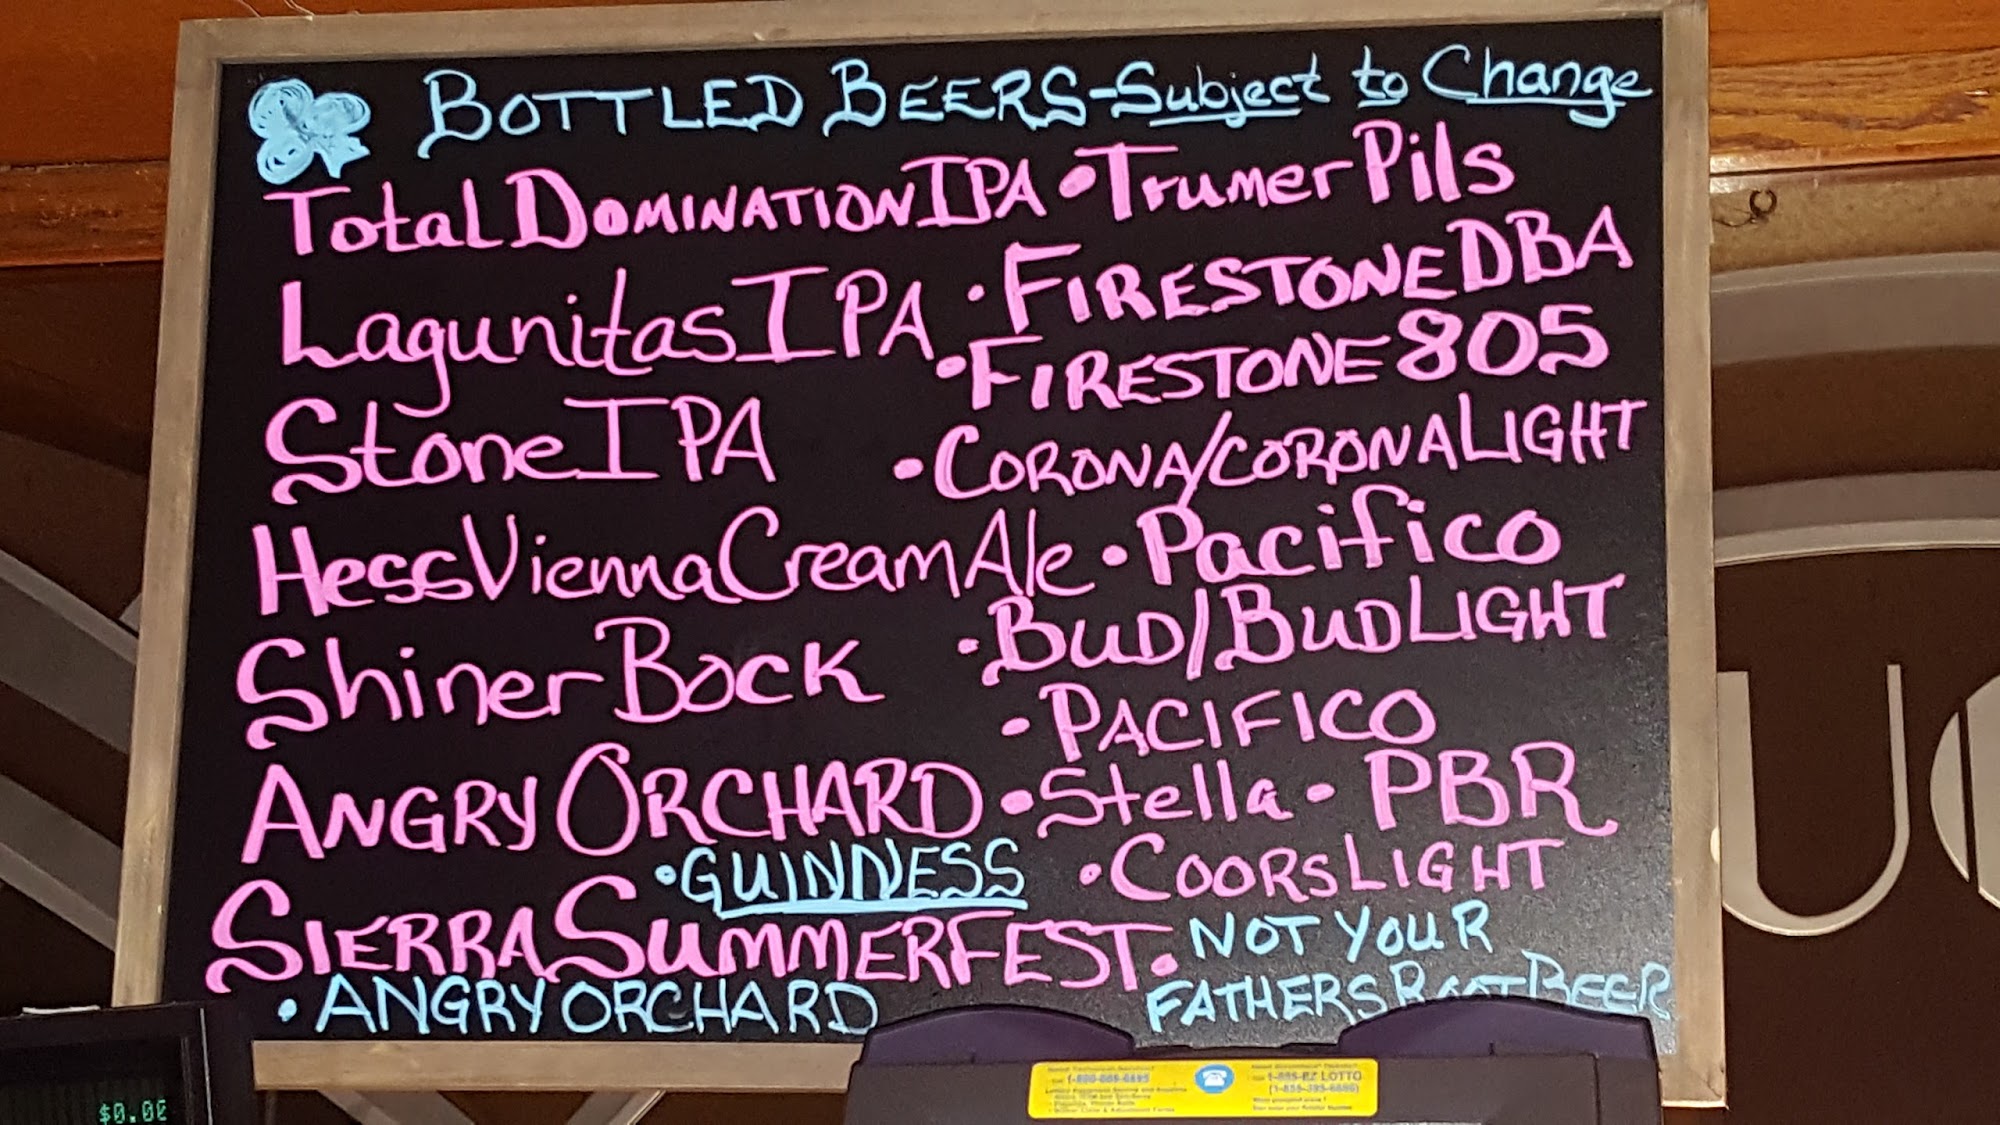 BOTTLED BEERS-Subject to Change
Total DOMINATION IPA • Trumer Pils
Lagunitas IPA • FIRESTONE DBA
• FIRESTONE 805
Stone IPA • CORONA/CORONA LIGHT
Hess Vienna Cream Ale • Pacifico
Shiner Bock • BUD/BUD LIGHT
• PACIFICO
ANGRY ORCHARD • Stella • PBR
• GUINNESS • COORS LIGHT
SIERRA SUMMERFEST • NOT YOUR
FATHERS ROOT BEER
• ANGRY ORCHARD
$0.00